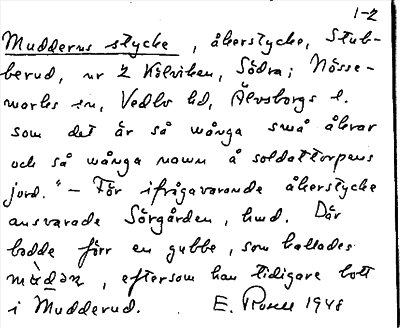 1-2
Mudderns stycke, åkerstycke, Stub-
berud, nr 2 Kölviken, Södra; Nösse-
marks sn, Vedbo hd, Älvsborgs l.
som det är så många små åkrar
och så många namn å soldattorpens
jord." – För ifrågavarande åkerstycke
ansvarade Sörgården, hmd. Där
bodde förr en gubbe, som kallades
, eftersom han tidigare bott
i Mudderud. E. Rosell 1948